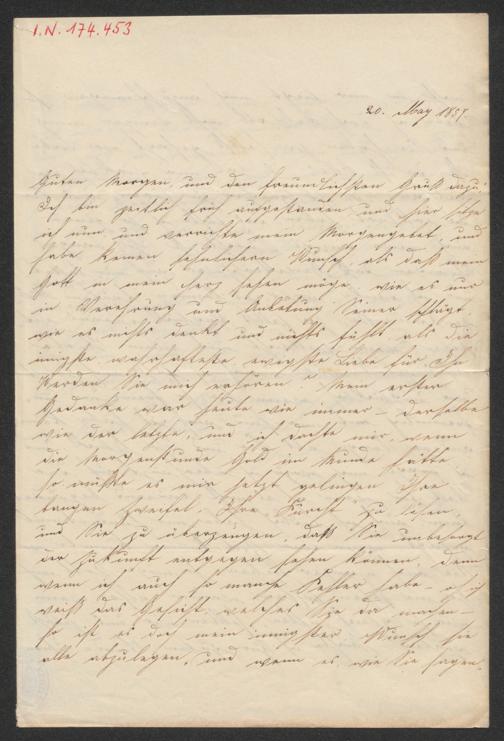 I.N. 174.453
20. May 1857.
Guten Morgen, und den freundlichsten Gruß dazu!
Ich bin zeitlich früh aufgestanden und hier sitze
ich nun und verrichte mein Morgengebet, und
habe keinen sehnlichern Wunsch als daß mein
Gott in mein Herz sehen möge wie es nur
in Verehrung und Anbetung Seiner schlägt
wie es nichts denkt und nichts fühlt als die
innigste wahrhafteste ewigste Liebe für Ihn
Werden Sie mich erhören? Mein erster
Gedanke war heute wie immer – derselbe
wie der letzte, und ich dachte mir, wenn
die Morgenstunde Gold im Munde hätte
so müßte es mir jetzt gelingen Ihre
bangen Zweifel, Ihre Furcht zu
und Sie zu überzeugen, daß Sie unbesorgt
der Zukunft entgegen sehen können, denn
wenn ich auch so manche Fehler habe – o ich
weiß das Gesicht, welches Sie da machen –
so ist es doch mein innigster Wunsch sie
alle abzulegen, und wenn es, wie Sie sagen,